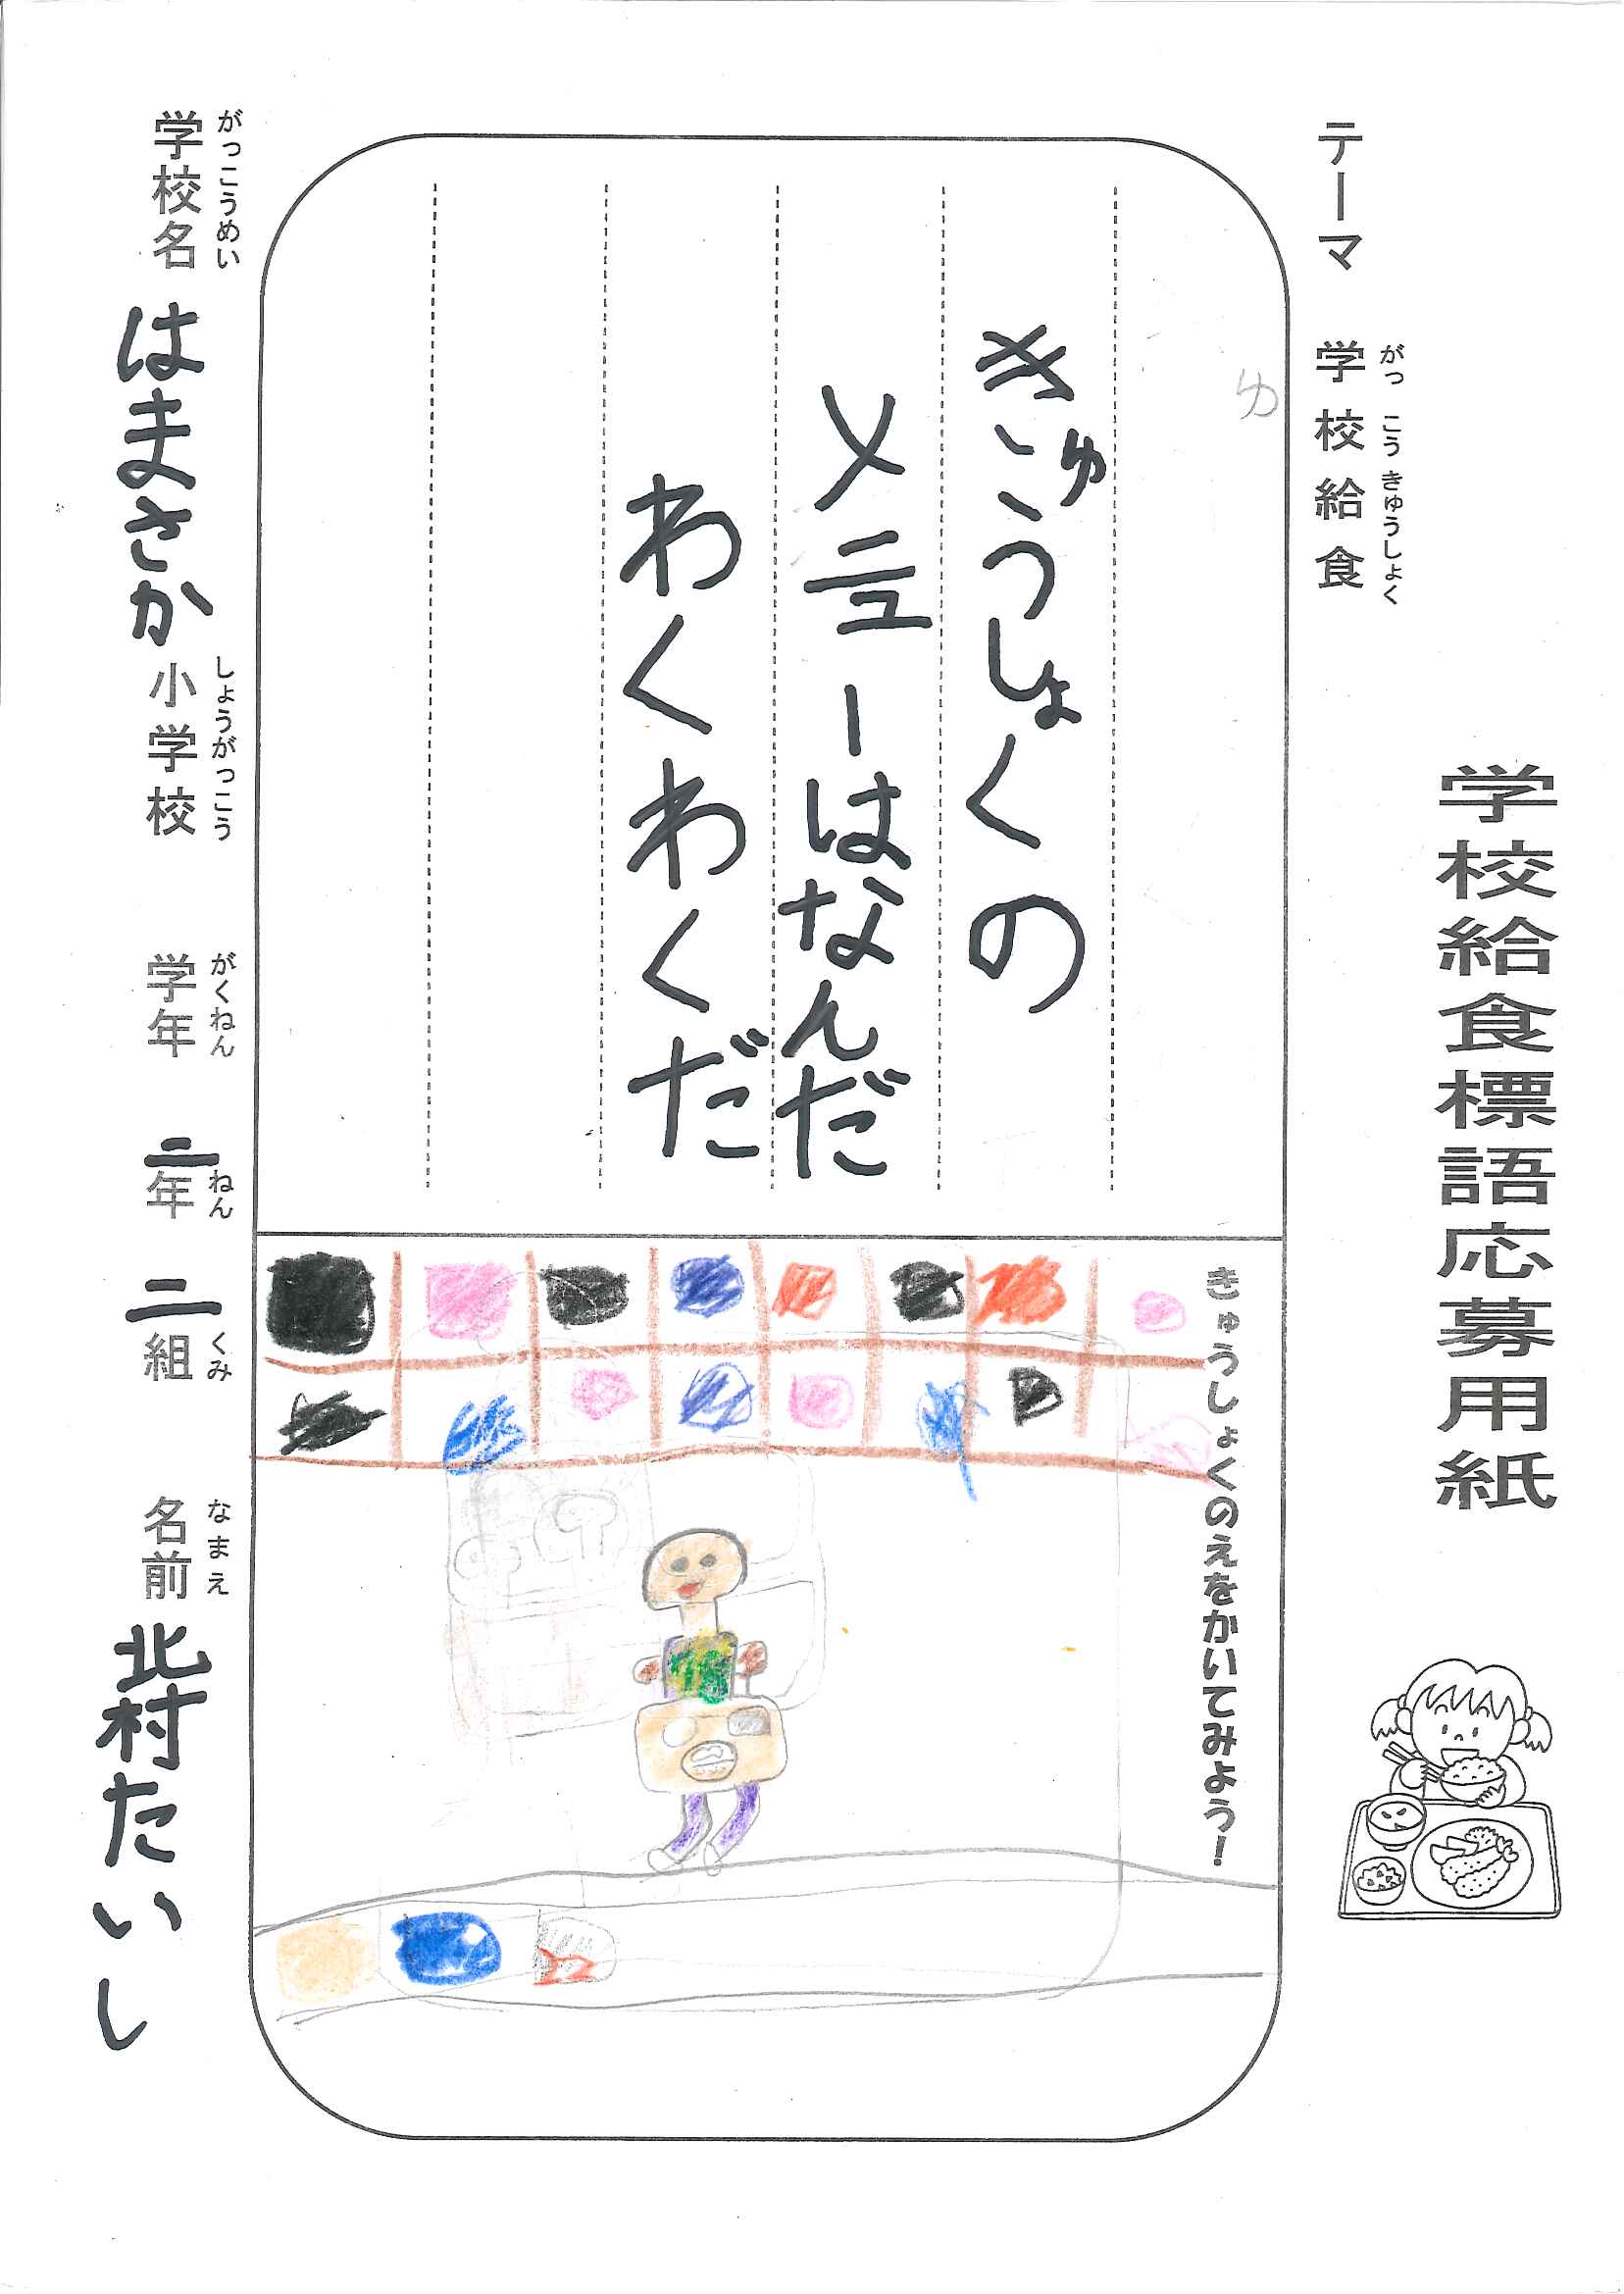 学校給食標語応募用紙
テーマ 学校給食
がっこうきゅうしょく
ゆ
きゅうしょくの
メニューはなんだ
わくわくだ
きゅうしょくのえをかいてみよう！
学校名 はまさか 小学校 学年 二年 二組 名前 北村たいし
がっこうめい しょうがっこう がくねん ねん くみ なまえ